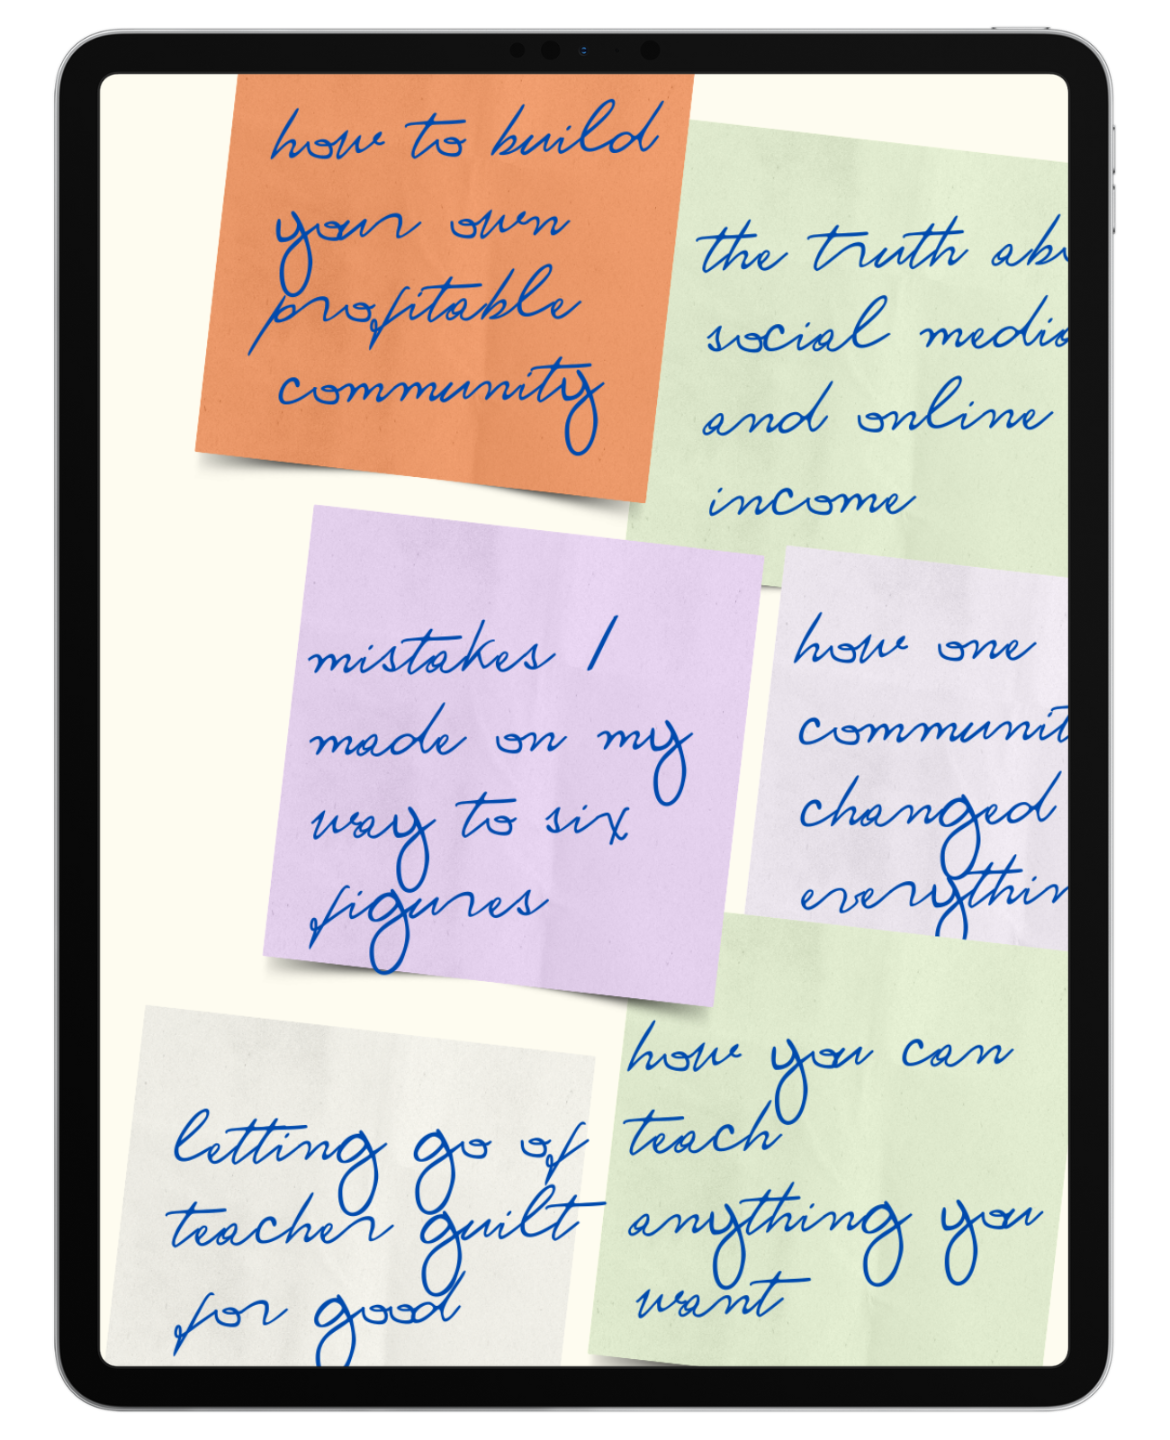 how to build
your own
profitable
community
the truth ab
social media
and online
income
mistakes I
made on my
way to six
figures
how one
communit
changed
everythin
letting go of
teacher guilt
for good
how you can
teach
anything you
want